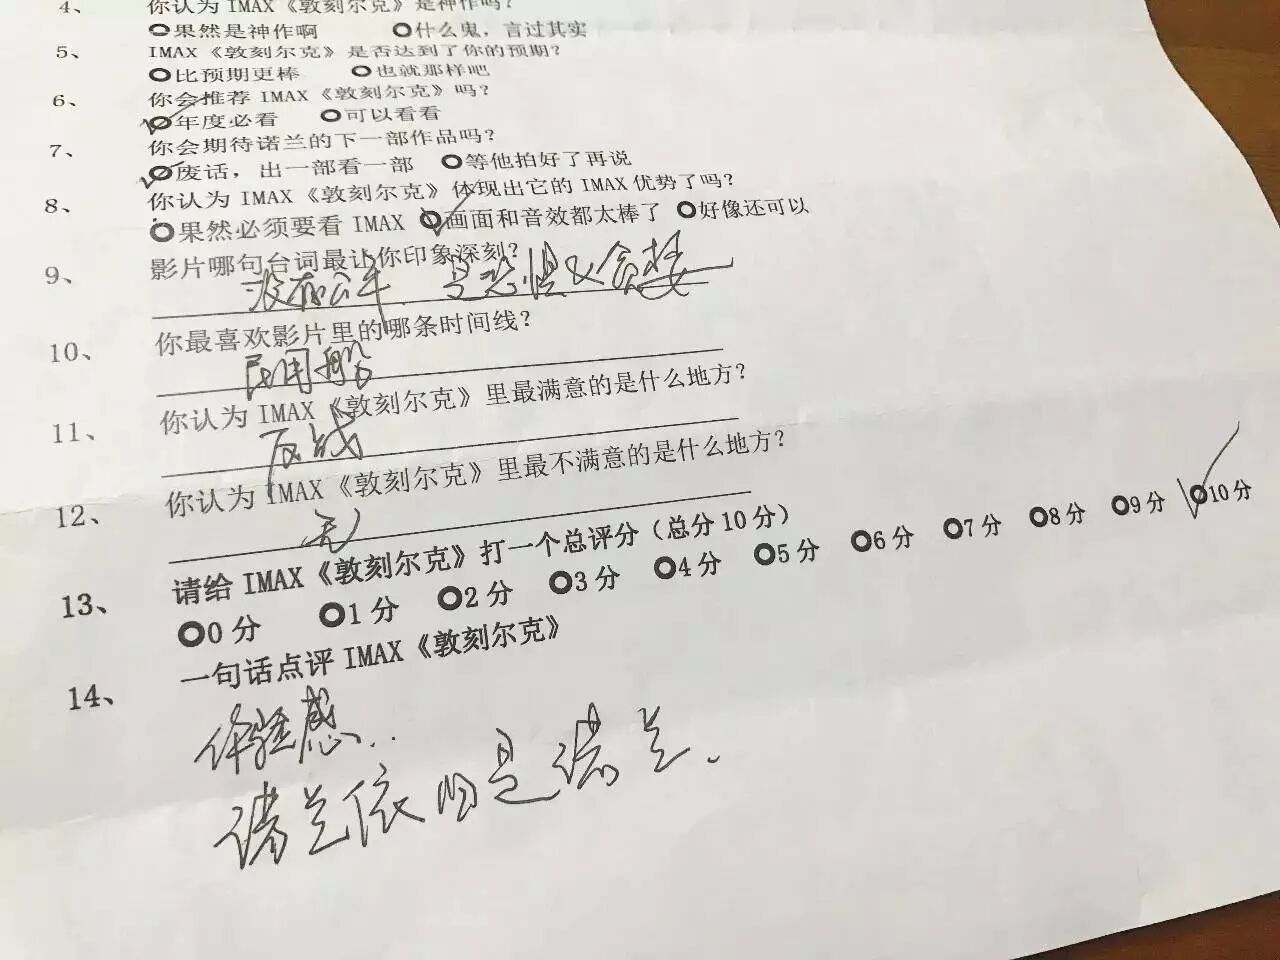 4、 你认为 IMAX《敦刻尔克》是神作吗？
果然是神作啊 什么鬼，言过其实
5、 IMAX《敦刻尔克》是否达到了你的预期？
比预期更棒 也就那样吧
6、 你会推荐 IMAX《敦刻尔克》吗？
年度必看 可以看看
7、 你会期待诺兰的下一部作品吗？
废话，出一部看一部 等他拍好了再说
8、 你认为 IMAX《敦刻尔克》体现出它的 IMAX 优势了吗？
果然必须要看 IMAX 画面和音效都太棒了 好像还可以
9、 影片哪句台词最让你印象深刻？
没有公平
10、 你最喜欢影片里的哪条时间线？
民用船
11、 你认为 IMAX《敦刻尔克》里最满意的是什么地方？
反战
12、 你认为 IMAX《敦刻尔克》里最不满意的是什么地方？
无
13、 请给 IMAX《敦刻尔克》打一个总评分（总分 10 分）
0 分 1 分 2 分 3 分 4 分 5 分 6 分 7 分 8 分 9 分 10 分
14、 一句话点评 IMAX《敦刻尔克》
体验感..
诺兰依旧是诺兰.